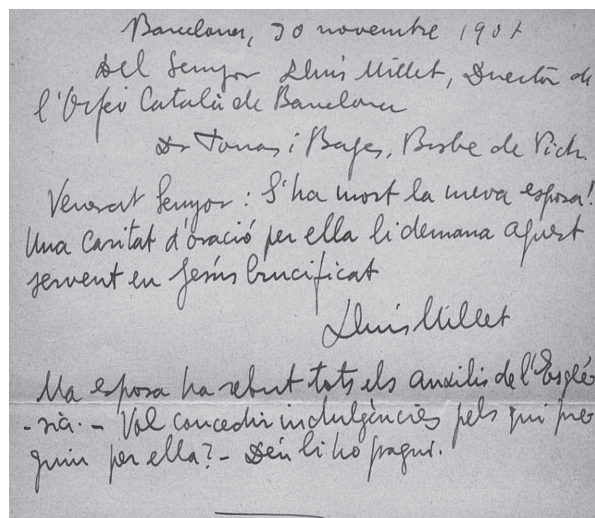 Barcelona, 30 novembre 1901
Del Senyor Lluís Millet, Director de
l'Orfeó Català de Barcelona
Dr Torras i Bages, Bisbe de Vich.
Venerat Senyor: S'ha mort la meva esposa!
Una caritat d'oració per ella li demana aquest
servent en Jesús Crucificat
Lluís Millet
Ma esposa ha rebut tots els auxilis de l'Esglé-
-sia. - Vol concedir indulgències pels qui pre-
guin per ella? - Déu li ho pagui.